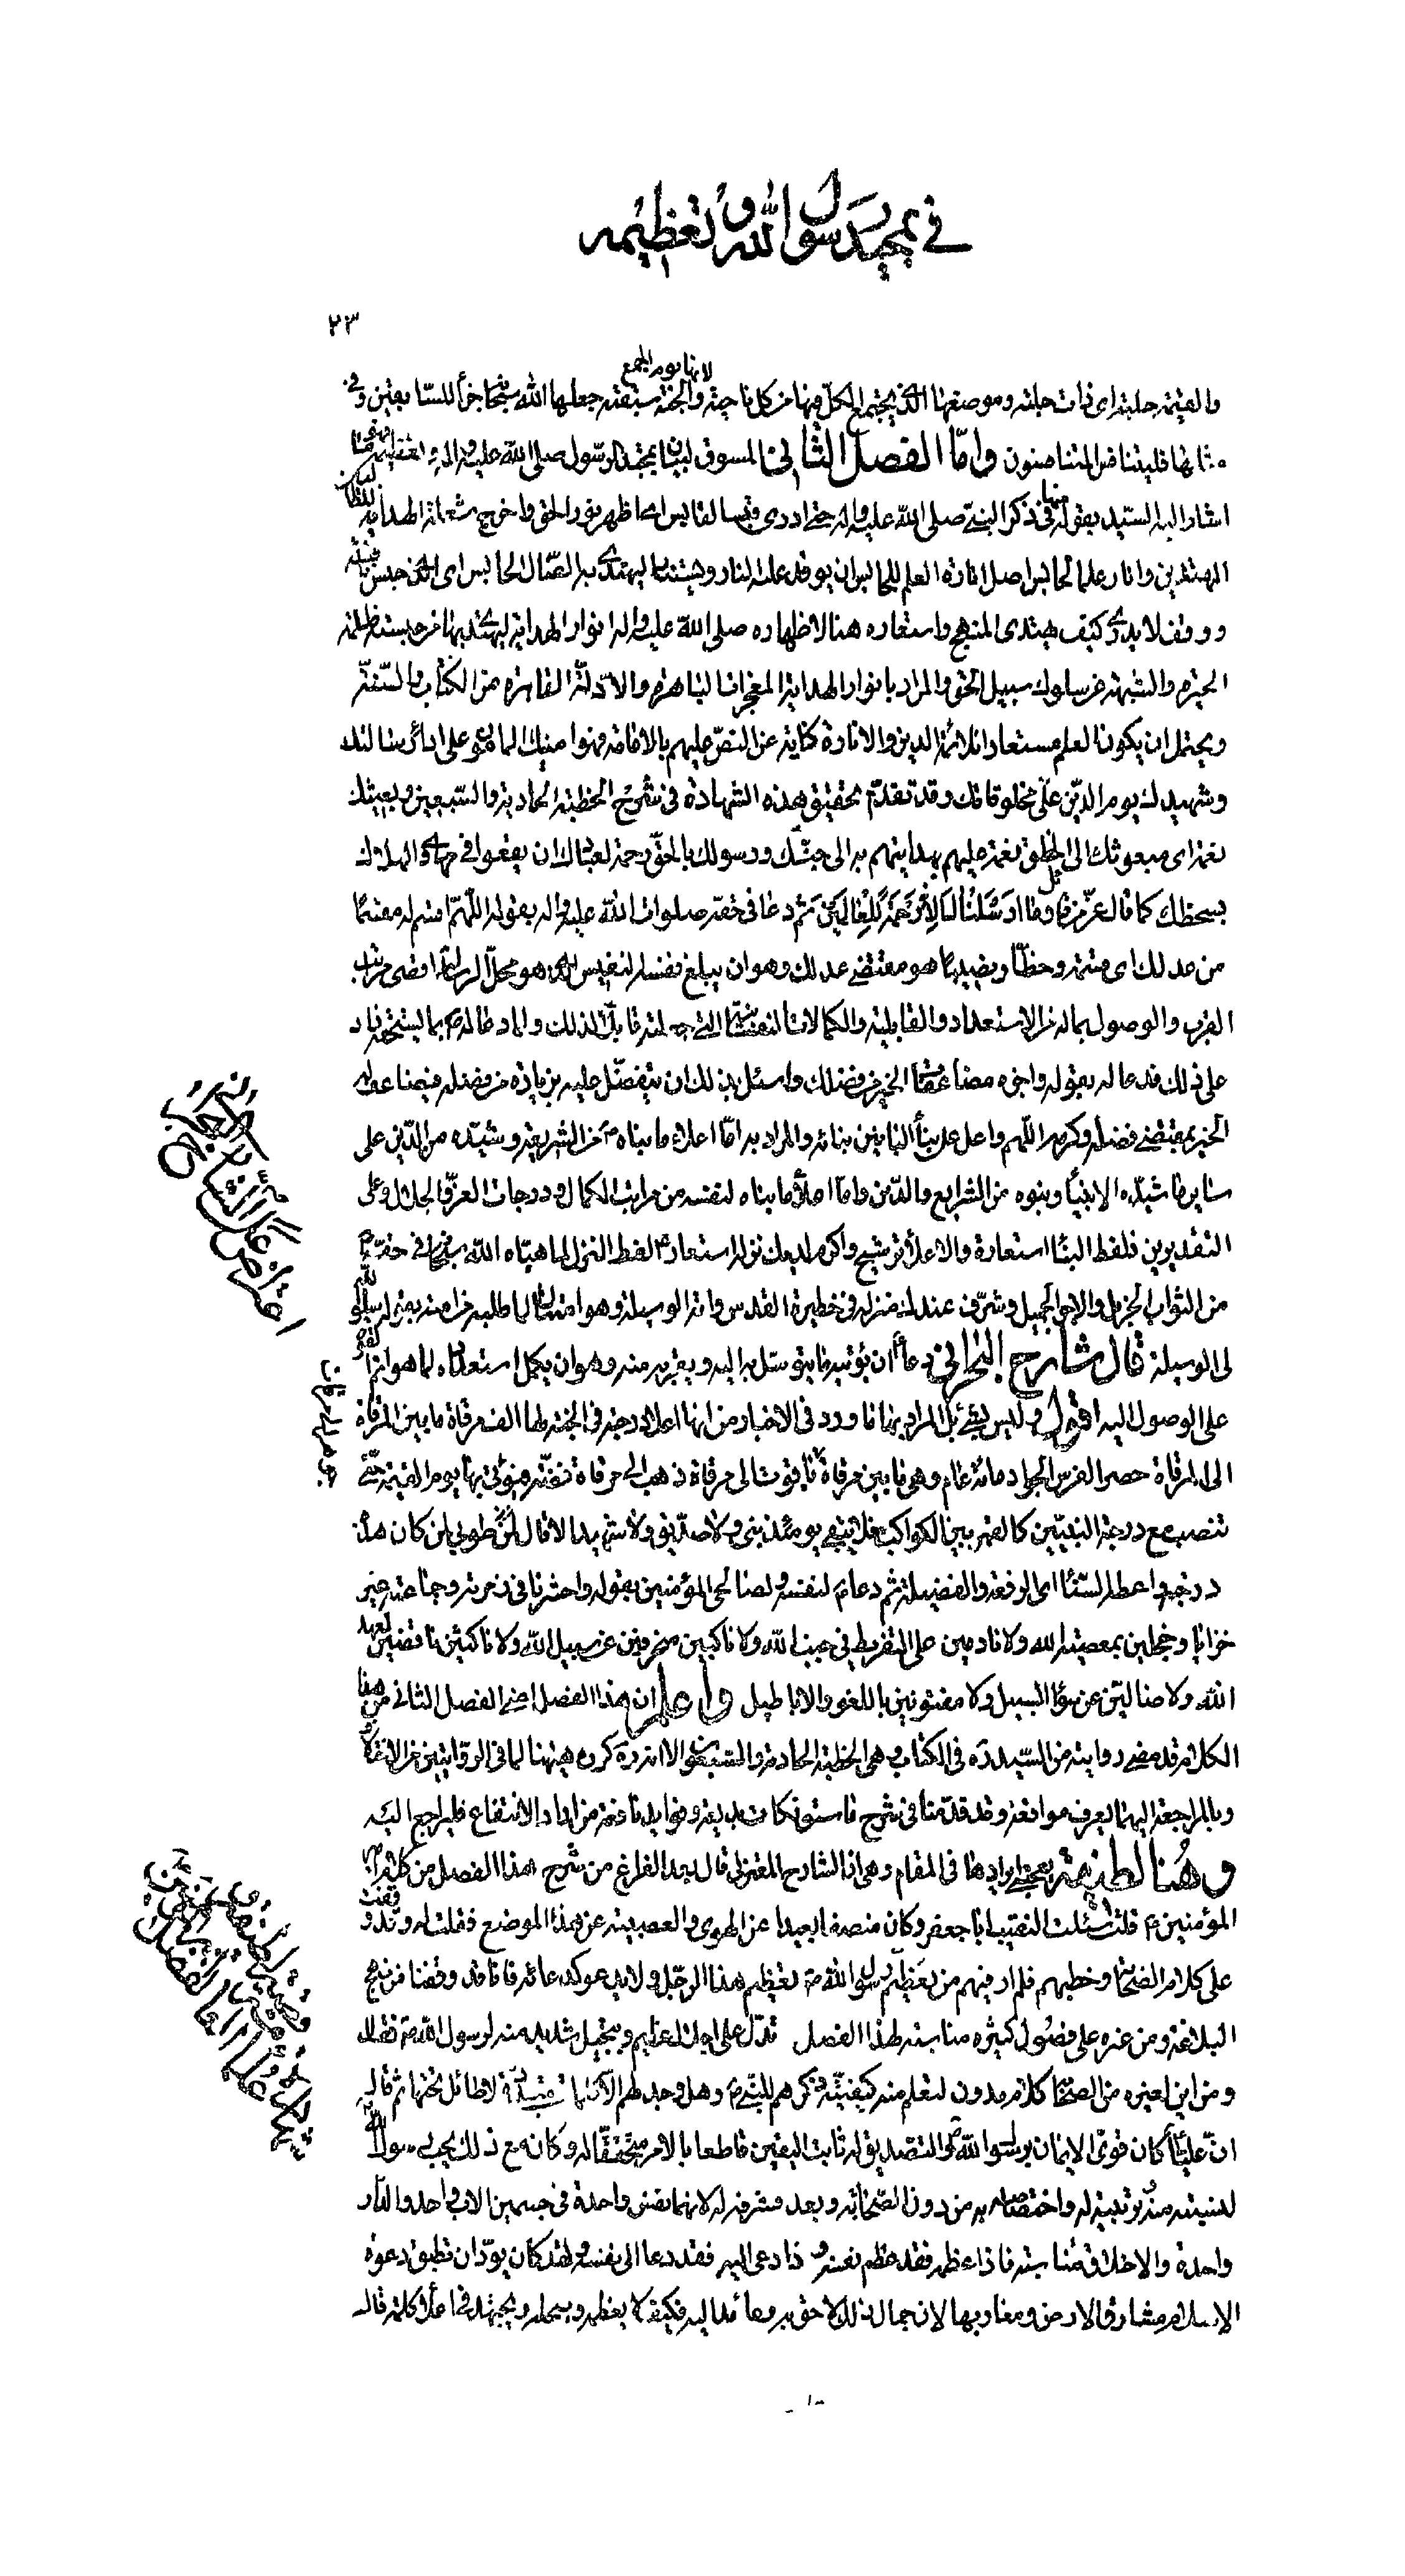 في تمجيد رسول الله و تعظيمه
٢٣
لانها يوم الجمع
والقيمة حلبته اى ذات حلبته وموضعها الذي يجتمع الكل فيها من كل ناحية والجنة سبقته جعلها الله سبحانه جزأ للسابقين وفي
مثلها فليتنافس المتنافسون واما الفصل الثاني المسوق لبيان تمجيد الرسول صلى الله عليه واله
اشار اليه السيد بقوله منها في ذكر النبي صلى الله عليه واله حتى اورى قبسا لقابس اى اظهر نور الحق واخرج شعلة الهداية
المهتدين وانار علما لحابس اصل انارة العلم للحابس ان يوقد عليه النار ويستند اليهتدى به الضال الحابس اى الذي حبس
ووقف لا يدرى كيف يهتدى المنهج واستعاره هنا لاظهاره صلى الله عليه واله انوار الهداية ليهتدى بها من حبسته ظلمة
الحيرة والشبهة عن سلوك سبيل الحق والمراد بانوار الهداية المعجزات الباهرة والادلة القاهرة من الكتاب والسنة
ويحتمل ان يكون العلم مستعارا لائمة الدين والانارة كناية عن النص عليهم بالامامة فهو امينك المامون على اداء رسالتك
وشهيدك يوم الدين على مخلوقاتك وقد تقدم تحقيق هذه الشهادة في شرح الخطبة الحادية والسبعين وبعيثك
نعمة اى مبعوثك الى الخلق نعمة عليهم بهدايتهم به الى جنتك ورسولك بالحق رحمة لعبادك ان يقعوا في مهاوى الهلاك
بسخطك كما قال عز من قائل وما ارسلناك الا رحمة للعالمين ثم دعا في حقه صلوات الله عليه واله بقوله اللهم اقسم له مقسما
من عدلك اى قسمة وحظا ونصيبا هو مقتضى عدلك وهو ان يبلغ نفسه النفيس الذي هو محل الرسالة اقصى مراتب
القرب والوصول بماله من الاستعداد والقابلية والكمالات النفسانية التي جعلته قابلا لذلك ولما دعا له بما يستحقه زاد
على ذلك فدعا له بقوله واجزه مضاعفات الخير من فضلك واسئل بذلك ان يتفضل عليه بزيادة من فضله فيضاعف له
الخير بمقتضى فضله وكرمه اللهم واعل على بناء البانين بنائه والمراد به اما اعلاء ما بناه من الشريعة وشيده من الدين على
ساير ما شيده الانبياء وبنوه من الشرايع والدين واما اعلاء ما بناه لنفسه من مراتب الكمال ودرجات العز والجلال وعلى
التقديرين فلفظ البناء استعارة والاعلاء ترشيح واكرم لديك نزله استعار لفظ النزل لما هياه الله سبحانه في حقه
من الثواب الجزيل والاجر الجميل وشرف عندك منزله في خطيرة القدس واته الوسيلة وهو امتثال لما طلبه من امته بقوله سلوا الله
لى الوسيلة قال شارح البحراني دعا ان يؤتيه ما يتوسل به اليه ويقربه منه وهو ان يكمل استعداده لما هو اتم القوة
على الوصول اليه اقول وليس بشئ بل المراد بها ما ورد في الاخبار من انها اعلا درجة في الجنة لها الف مرقاة ما بين المرقاة
الى المرقاة حضر الفرس الجواد مائة عام وهي ما بين مرقاة ياقوت الى مرقاة ذهب الى مرقاة فضة فيؤتى بها يوم القيمة حتى
تنصب مع درجة النبيين كالقمر بين الكواكب فلا يبقى يومئذ نبى ولا صديق ولا شهيد الا قال طوبى لمن كان هذه
درجته واعطه السناء اى الرفعة والفضيلة ثم دعا لنفسه ولصالحى المؤمنين بقوله واحشرنا في زمرته وجماعته غير
خزايا وخجلين بمعصية الله ولا نادمين على التفريط في جنب الله ولا ناكبين منحرفين عن سبيل الله ولا ناكثين ناقضين لعهد
الله ولا ضالين عن سواء السبيل ولا مفتونين باللغو والاباطيل واعلم ان هذا الفصل اعنى الفصل الثاني من هذا
الكلام قد مضى روايته من السيد ره في الكتاب وهي الخطبة الحادية والسبعون الا انه ذكره ههنا لما في الروايتين من الاختلاف
وبالمراجعة اليهما تعرف مواقعه وقد قدمنا في شرح ما سبق نكات بديعة وفوايد نافعة من اراد الانتفاع فليراجع اليه
وهنا لطيفة يعجبني ايرادها في المقام وهي ان الشارح المعتزلى قال بعد الفراغ من شرح هذا الفصل من كلام امير
المؤمنين ع قلت سئلت النقيب ابا جعفر وكان منصفا بعيدا عن الهوى والعصبية عن هذا الموضع فقلت له وقد وقفت
على كلام الصحابة وخطبهم فلم ار فيهم من يعظم رسول الله ص تعظيم هذا الرجل ولا يدعو كدعائه فانا قد وقفنا من نهج
البلاغة ومن غيره على فصول كثيرة مناسبة لهذا الفصل تدل على اجلال عظيم وتبجيل شديد منه لرسول الله ص فقال
ومن اين لغيره من الصحابة كلام مدون لتعلم منه كيفية ذكرهم للنبي ص وهل وجد لهم الا كلمات مبتدرة لا طائل تحتها ثم قال
ان عليا كان قوى الايمان برسول الله ص والتصديق له ثابت اليقين قاطعا بالامر متحققا له وكان مع ذلك يحب رسول الله
لنسبته منه وتربيته له واختصاصه به من دون الصحابة وبعد فشرفه له لانهما نفس واحدة في جسمين الاب واحد والدار
واحدة والاخلاق متناسبة فاذا عظمه فقد عظم نفسه واذا دعى اليه فقد دعا الى نفسه ولقد كان يود ان تطبق دعوة
الاسلام مشارق الارض ومغاربها لان جمال ذلك لاحق به وعائد اليه فكيف لا يعظمه ويبجله ويجتهد في اعلاء كلمته قال
اعتراض على الشارح البحراني